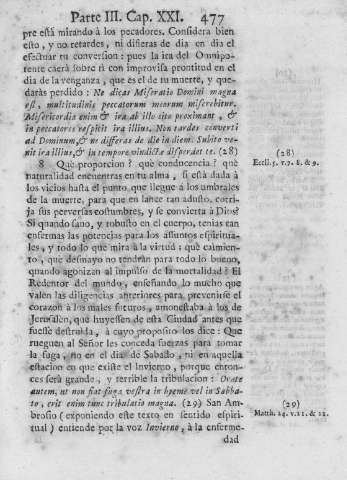 Parte III. Cap. XXI. 477
pre está mirando à los pecadores. Considera bien
esto, y no retardes, ni difieras de dia en dia el
efectuar tu conversion: pues la ira del Omnipo-
tente caerà sobre ti con improvisa prontitud en el
dia de la venganza, que es el de tu muerte, y que-
darás perdido: Ne dicas Miseratio Domini magna
est, multitudinis peccatorum meorum miserebitur.
Misericordia enim & ira ab illo cito proximant, &
in peccatores respicit ira illius. Non tardes converti
ad Dominum, & ne differas de die in diem. Subito ve-
nit ira illius, & in tempore vindictæ disperdet te. (28)
(28)
Eccli. 5. v. 7. 8. & 9.
8 Què proporcion? què conducencia? què
naturalidad encuentras en tu alma, si está dada à
los vicios hasta el punto que llegue à los umbrales
de la muerte, para que en lance tan adusto, corri-
ja sus perversas costumbres, y se convierta à Dios?
Si quando sano, y robusto en el cuerpo, tenias tan
enfermas las potencias para los assuntos espiritua-
les, y todo lo que mira à la virtud: què caimien-
to, què desmayo no tendràn para todo lo bueno,
quando agonizen al impulso de la mortalidad? El
Redentor del mundo, enseñando lo mucho que
valen las diligencias anteriores para prevenirse el
corazon à los males futuros, amonestaba à los de
Jerusalen, que huyessen de esta Ciudad antes que
fuesse destruìda, à cuyo proposito les dice: Que
rueguen al Señor les conceda fuerzas para tomar
la fuga, no en el dia de Sabado, ni en aquella
estacion en que existe el Invierno, porque enton-
ces serà grande, y terrible la tribulacion: Orate
autem, ut non fiat fuga vestra in hyeme vel in Sabba-
to, erit enim tunc tribulatio magna. (29) San Am-
(29)
Matth. 24. v. 21. & 22.
brosio (exponiendo este texto en sentido espiri-
tual) entiende por la voz Invierno, à la enferme-
dad